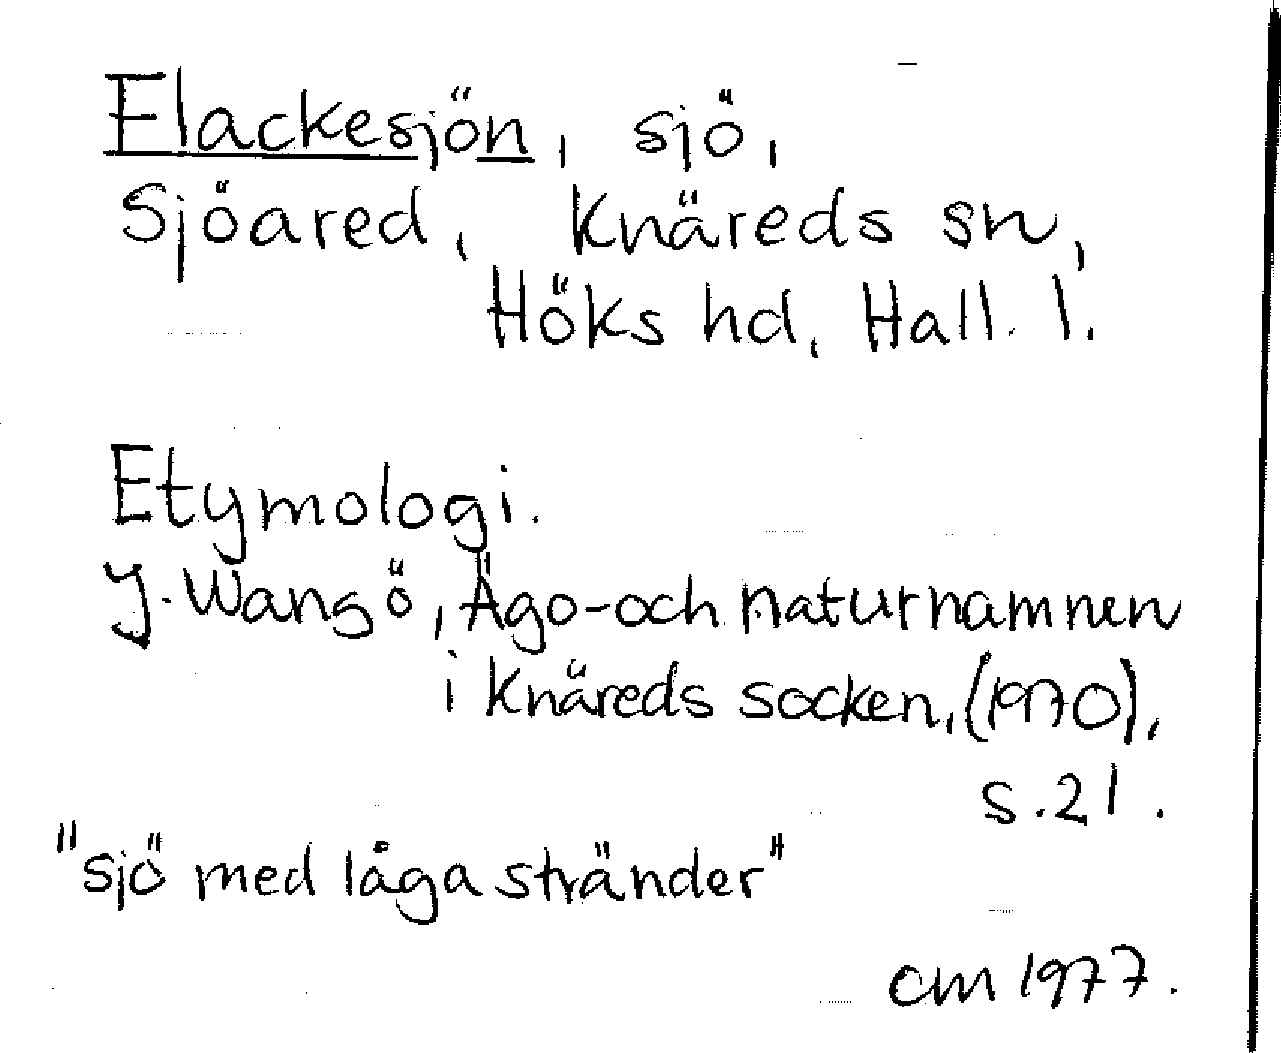 Flackesjön, sjö,
Sjöared, Knäreds sn,
Höks hd, Hall. l.
Etymologi.
J. Wangö, Ägo- och naturnamnen
i Knäreds socken, (1970),
s. 21.
"sjö med låga stränder"
CM 1977.